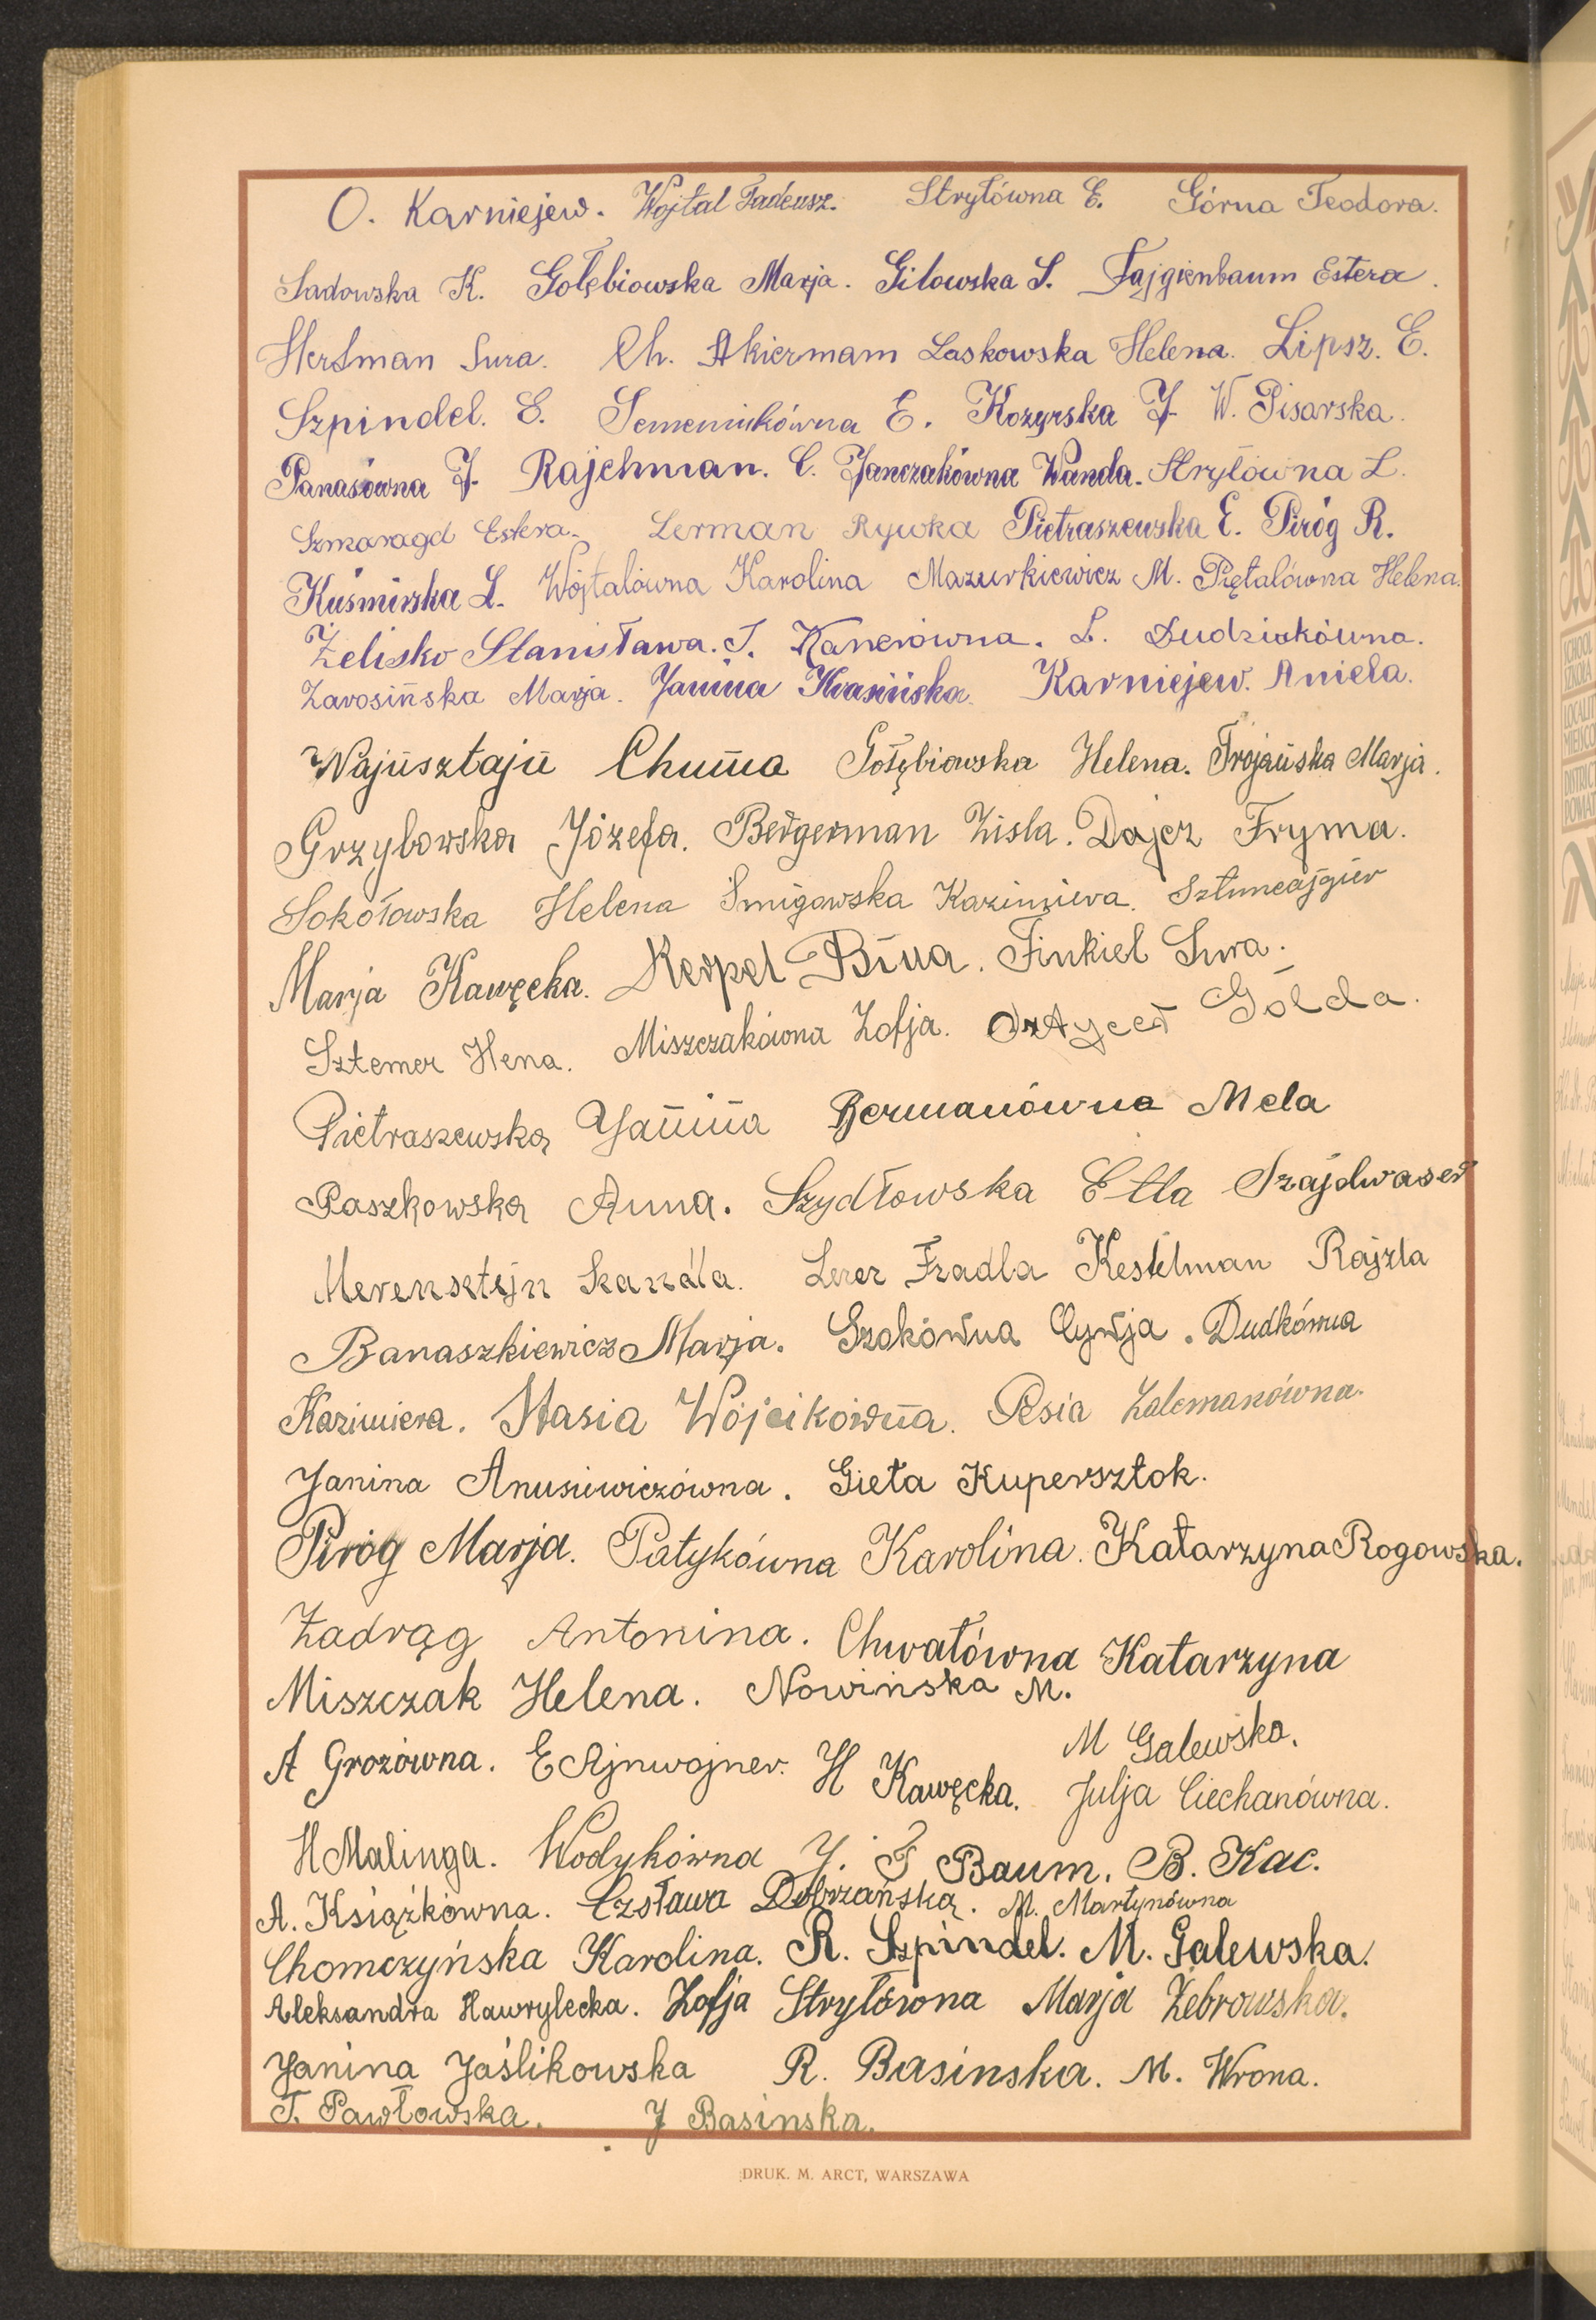 O. Karniejew. Wojtal Tadeusz. Stryłówna E. Górna Teodora.
Sadowska K. Gołębiowska Marja. Gilowska S. Fajgienbaum Estera.
Hersman Sura. Ch. Akiermam Laskowska Helena. Lipsz. E.
Szpindel. E. Semeniukówna E. Kozyrska J. W. Pisarska.
Panasówna J. Rajchman. C. Janczakówna Wanda. Stryłówna L.
Szmaragd Estera. Lerman Rywka Pietraszewska E. Piróg R.
Kuśmirska L. Wójtalówna Karolina Mazurkiewicz M. Piętalówna Helena.
Żelisko Stanisława. T. Kanerówna. L. Dudziakówna.
Zarosińska Marja. Janina Krasińska. Karniejew. Aniela.
Wajnsztajn Chuma Gołębiowska Helena. Trojańska Marja.
Grzybowska Józefa. Bergerman Zisla. Dajcz Fryma.
Sokołowska Helena Smigowska Kazimiera. Sztuncajgier
Marja Kawęcka. Kerpel Bina. Finkiel Sura.
Sztemer Hena. Miszczakówna Zofja. Golda.
Pietraszewska Janina Bermanówna Mela
Paszkowska Anna. Szydłowska Etla Szajdwaser
Merensztejn Lerer Fradla Kestelman Rajzla
Banaszkiewicz Marja. Szokówna Cywja. Dudkówna
Kazimiera. Stasia Wójcikówna. Pesia Zalemanówna.
Janina Anusiewiczówna. Gieta Kupersztok.
Piróg Marja. Patykówna Karolina. Katarzyna Rogowska.
Zadrąg Antonina. Chwałówna Katarzyna
Miszczak Helena. Nowińska M.
M Galewska.
A Grozówna. E Ajnwojner. H Kawęcka. Julja Ciechanówna.
H Malinga. Wodykówna J. F Baum. B. Kac.
A. Książkówna. Czsława Dobrzańska. M. Martynówna
Chomczyńska Karolina. R. Szpindel. M. Galewska.
Aleksandra Hawrylecka. Zofja Stryłówna Marja Żebrowska.
Janina Jaślikowska R. Basinska. M. Wrona.
T. Pawłowska. J Basinska.
DRUK. M. ARCT, WARSZAWA